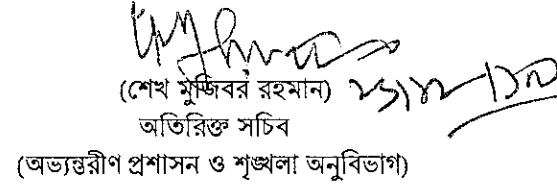 (শেখ মুজিবর রহমান)
অতিরিক্ত সচিব
(অভ্যন্তরীণ প্রশাসন ও শৃঙ্খলা অনুবিভাগ)